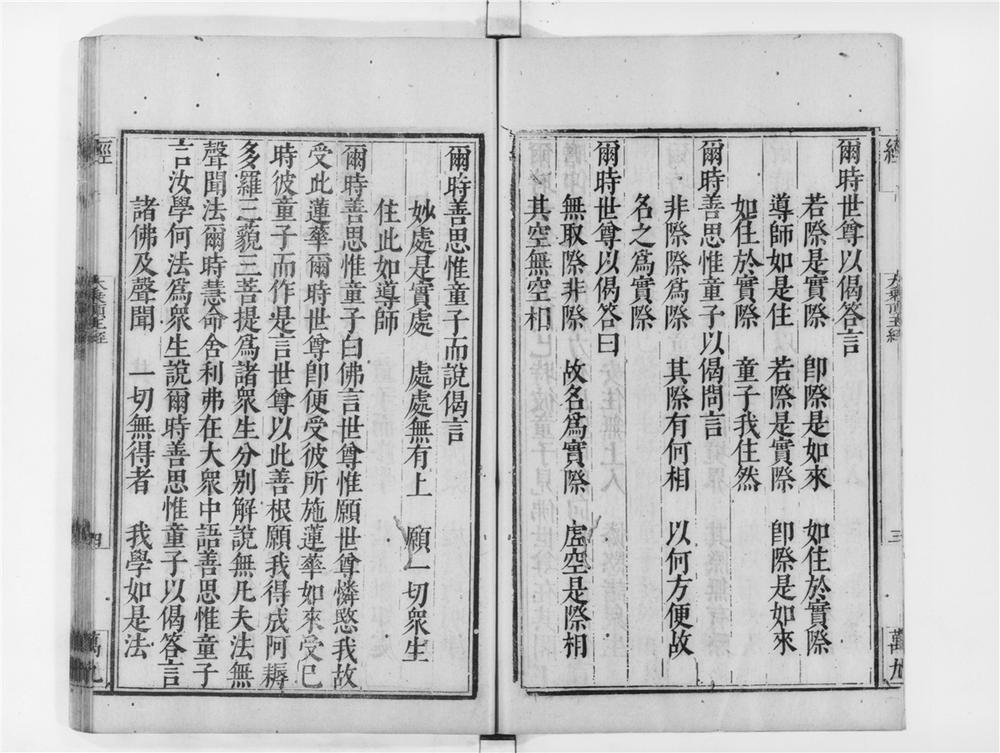 爾時世尊以偈答言
若際是實際 卽際是如來 如住於實際
導師如是住 若際是實際 卽際是如來
如住於實際 童子我住然
爾時善思惟童子以偈問言
非際際爲際 其際有何相 以何方便故
名之爲實際
爾時世尊以偈答曰
無取際非際 故名爲實際 虛空是際相
其空無空相
爾時善思惟童子而說偈言
妙處是實處 處處無有上 願一切衆生
住此如導師
爾時善思惟童子白佛言世尊惟願世尊憐愍我故
受此蓮華爾時世尊卽便受彼所施蓮華如來受已
時彼童子而作是言世尊以此善根願我得成阿耨
多羅三藐三菩提爲諸衆生分別解說無凡夫法無
聲聞法爾時慧命舍利弗在大衆中語善思惟童子
言汝學何法爲衆生說爾時善思惟童子以偈答言
諸佛及聲聞 一切無得者 我學如是法
經
大乘頂王經
三
萬九
經
大乘頂王經
四
萬九